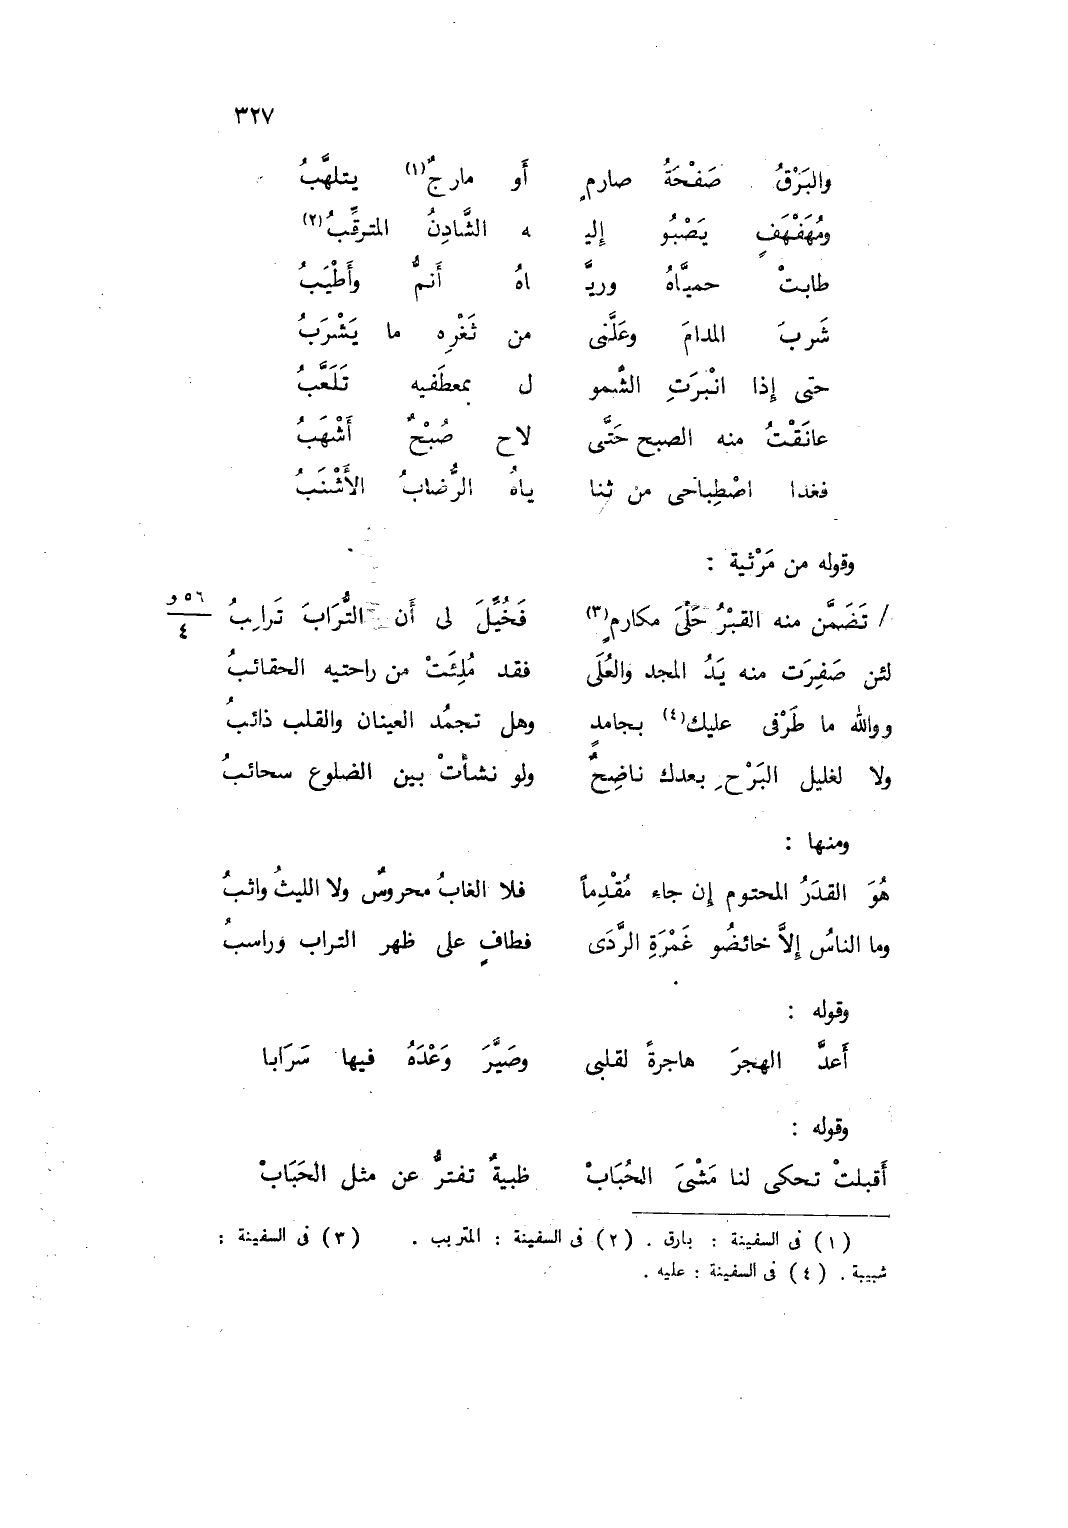 ٣٢٧
والبَرْقُ صَفْحَةُ صارمٍ أَو مارجٌ(١) يتلهَّبُ
ومُهَفْهَفٍ يَصْبُو إليـ ـه الشَّادِنُ المترقِّبُ(٢)
طابتْ حميَّاهُ وريَّـ ـاهُ أَنمُّ وأَطْيَبُ
شَربَ المدامَ وعَلَّنى من ثَغْرِه ما يَشْرَبُ
حتى إذا انْبرَتِ الشَّمو ل بمعطَفيه تَلَعَّبُ
عانَقْتُ منه الصبح حَتَّى لاح صُبْحٌ أَشْهَبُ
فغدا اصْطِباحى من ثنا ياهُ الرُّضابُ الأَشْنَبُ
وقوله من مَرْثية :
/ تَضَمَّن منه القبْرُ حَلْىَ مكارمٍ(٣) فَخُيِّلَ لى أَن التُّرَابَ تَرايِبُ
٥٦ و
٤
لئن صَفِرَت منه يَدُ المجد والعُلَى فقد مُلِئَتْ من راحتيه الحقائبُ
ووالله ما طَرْفى عليك(٤) بجامدٍ وهل تجمُد العينان والقلب ذائبُ
ولا لغليل البَرْحِ بعدك ناضِحٌ ولو نشأتْ بين الضلوع سحائبُ
ومنها :
هُوَ القدَرُ المحتوم إن جاء مُقْدِماً فلا الغابُ محروسٌ ولا الليثُ واثبُ
وما الناسُ إلاَّ خائضُو غَمْرَةِ الرَّدَى فطافٍ على ظهر التراب وراسبُ
وقوله :
أَعدَّ الهجرَ هاجرةً لقلبى وصَيَّرَ وَعْدَهُ فيها سَرَابا
وقوله :
أَقبلتْ تحكى لنا مَشْىَ الحُبَابْ ظبيةٌ تفترُّ عن مثل الحَبَابْ
(١) فى السفينة : بارق . (٢) فى السفينة : المتربب . (٣) فى السفينة :
شبيبة . (٤) فى السفينة : عليه .